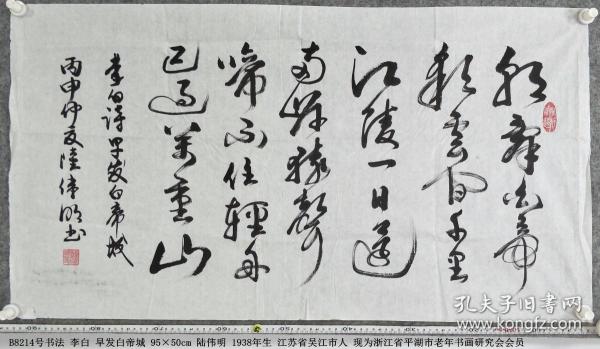 朝辞白帝
彩云间千里
江陵一日还
两岸猿声
啼不住轻舟
已过万重山
李白诗早发白帝城
丙申仲夏陆伟明书
孔夫子旧书网
B8214号书法 李白 早发白帝城 95×50cm 陆伟明 1938年生 江苏省吴江市人 现为浙江省平湖市老年书画研究会会员